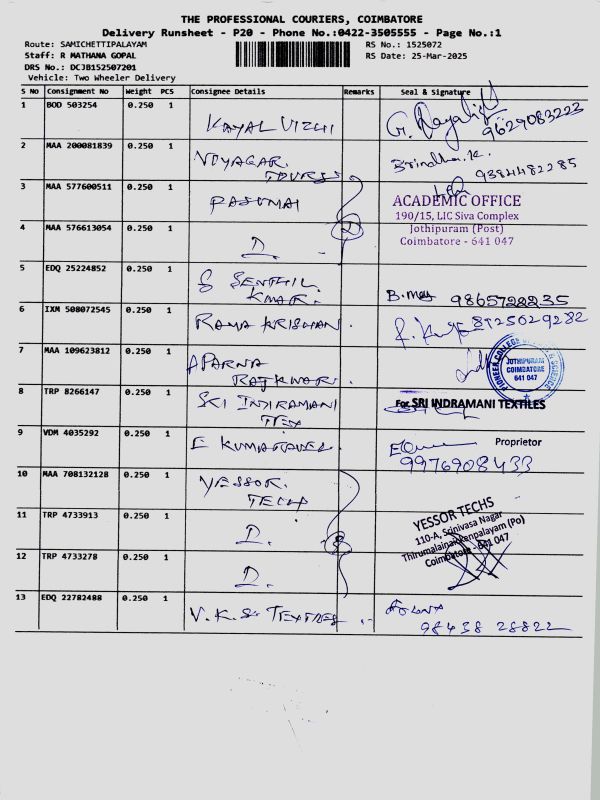 THE PROFESSIONAL COURIERS, COIMBATORE
Delivery Runsheet - P20 - Phone No.:0422-3505555 - Page No.:1
Route: SAMICHETTIPALAYAM
RS No.: 1525072
Staff: R MATHANA GOPAL
RS Date: 25-Mar-2025
DRS No.: DCJB152507201
Vehicle: Two Wheeler Delivery
S No Consignment No Weight PCS Consignee Details Remarks Seal & Signature
1 BOD 503254 0.250 1 KAYAL VIZHI 9629083223
2 MAA 200081839 0.250 1 TOURS Brindha.K. 9384482285
3 MAA 577600511 0.250 1 PASUMAI
ACADEMIC OFFICE
190/15, LIC Siva Complex
Jothipuram (Post)
Coimbatore - 641 047
4 MAA 576613054 0.250 1 D. 2
5 EDQ 25224852 0.250 1 S SENTHIL KMAR. 9865728235
6 IXM 508072545 0.250 1 RAMA KRISHNAN. 8925029282
7 MAA 109623812 0.250 1 APARNA RAJKUMARI
JOTHIPURAM
COIMBATORE
641 047
8 TRP 8266147 0.250 1 SRI INDIRAMANI TEX
For SRI INDRAMANI TEXTILES
Proprietor
9 VDM 4035292 0.250 1 E KUMARAVEL 9976908433
10 MAA 708132128 0.250 1 YESSOR. TECH
YESSOR TECHS
110-A, Srinivasa Nagar
Thirumalainaickenpalayam (Po)
Coimbatore - 641 047
11 TRP 4733913 0.250 1 D. 3
12 TRP 4733278 0.250 1 D.
13 EDQ 22782488 0.250 1 V.K.S. TEXTILES 98438 28822